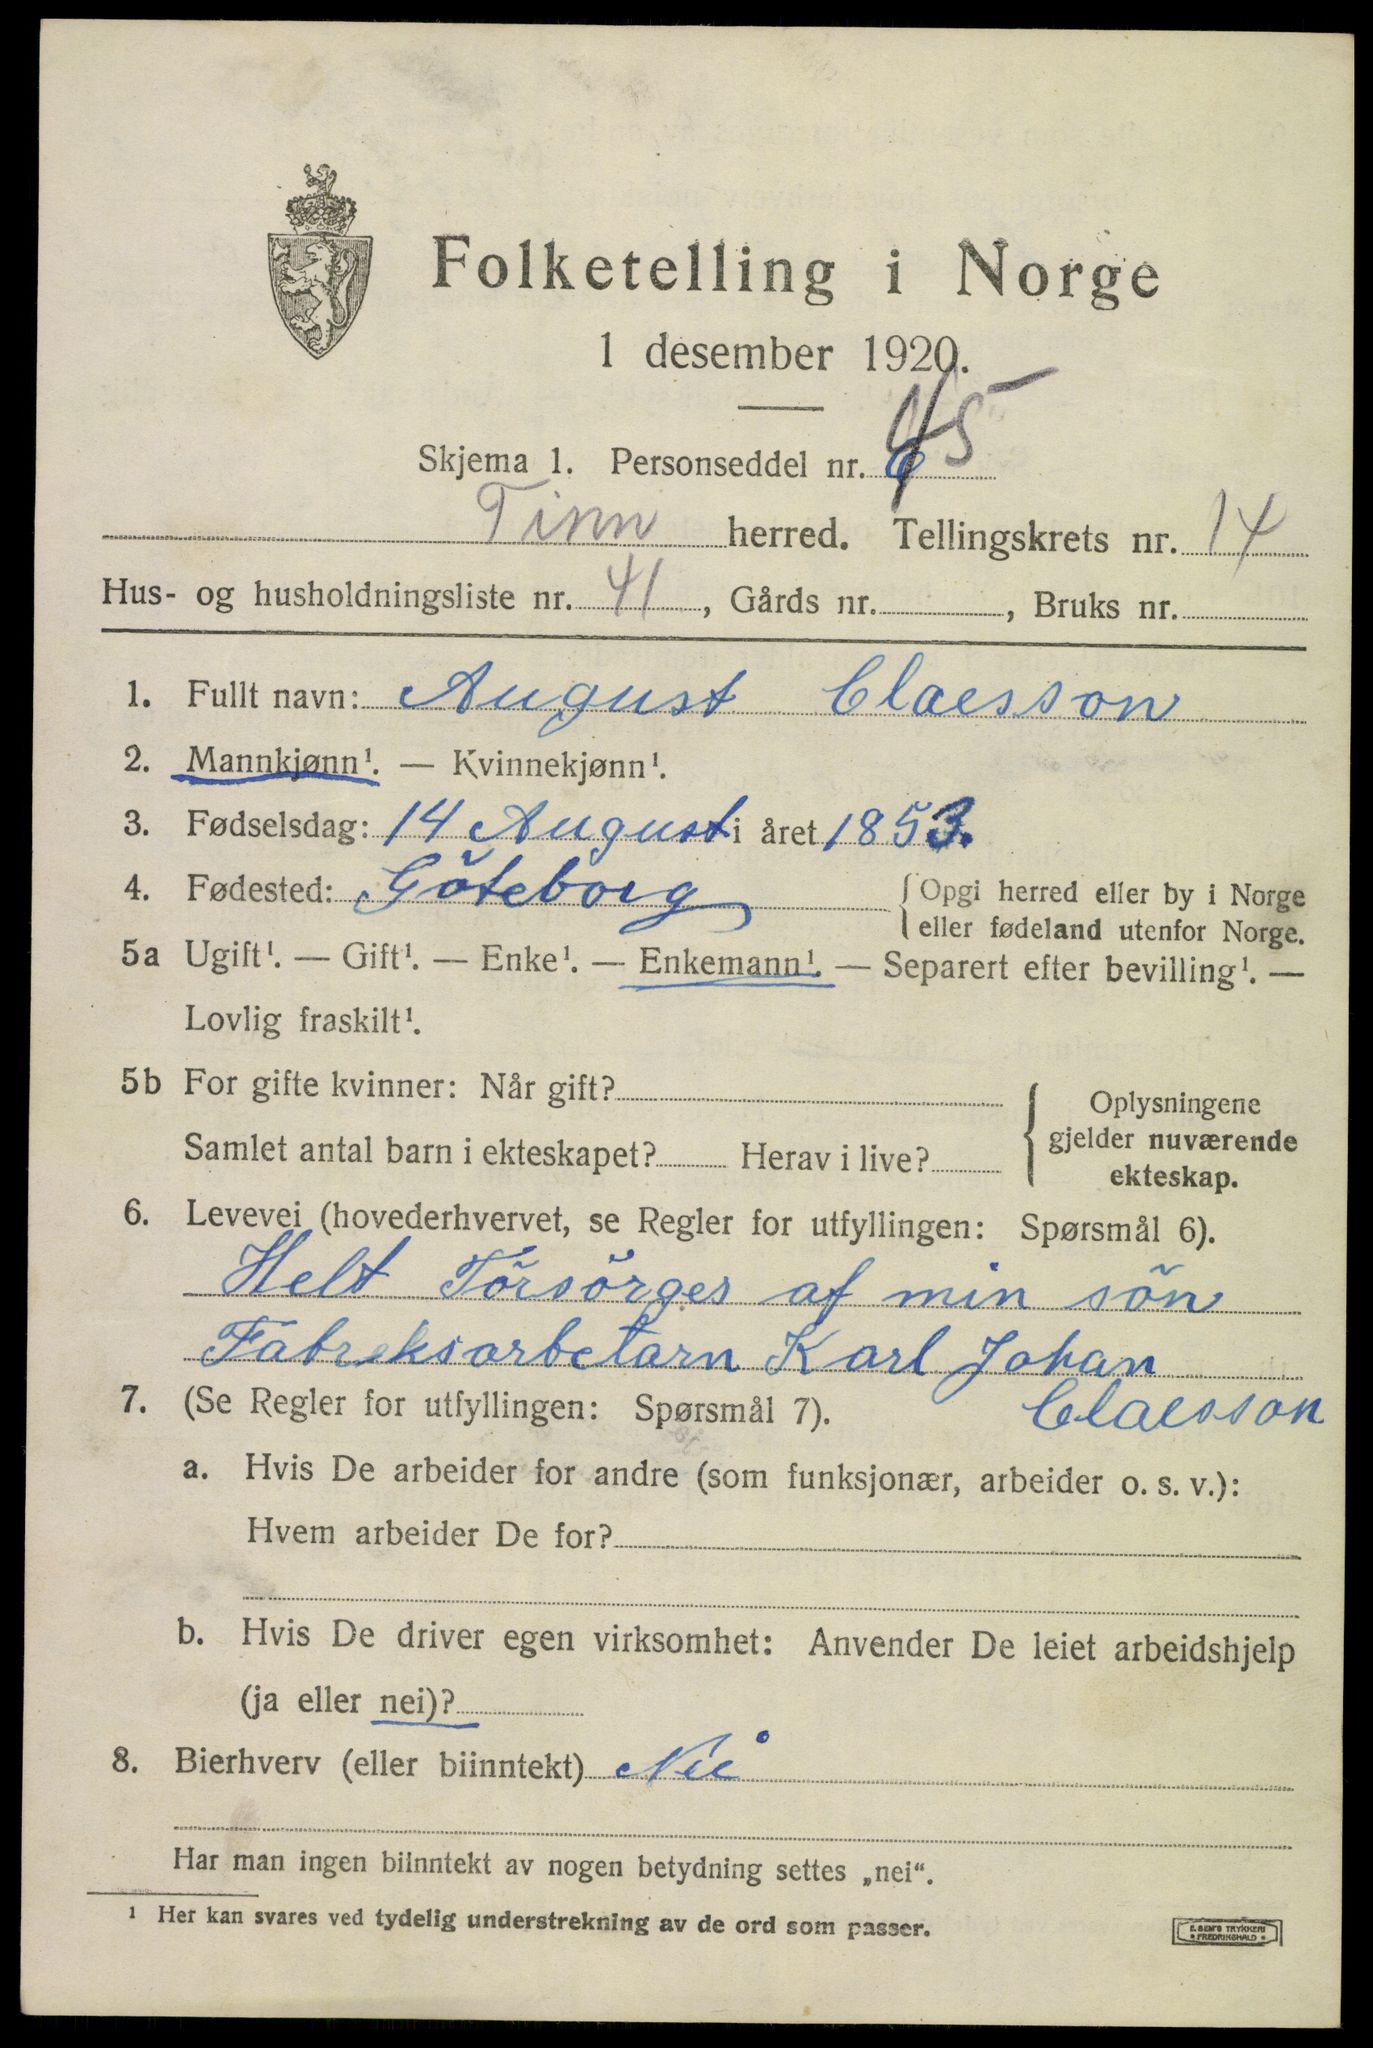 Folketelling i Norge
1 desember 1920.
Skjema 1. Personseddel nr. 45
Tinn herred. Tellingskrets nr. 14
Hus- og husholdningsliste nr. 41, Gårds nr. , Bruks nr.
1. Fullt navn: August Claesson
2. Mannkjønn¹. — Kvinnekjønn¹.
3. Fødselsdag: 14 August i året 1853.
4. Fødested: Göteborg { Opgi herred eller by i Norge
eller fødeland utenfor Norge.
5a Ugift¹. — Gift¹. — Enke¹. — Enkemann¹. — Separert efter bevilling¹. —
Lovlig fraskilt¹.
5b For gifte kvinner: Når gift? { Oplysningene
gjelder nuværende
Samlet antal barn i ekteskapet? Herav i live?
ekteskap.
6. Levevei (hovederhvervet, se Regler for utfyllingen: Spørsmål 6).
Helt Försörges af min sön
Fabreksarbetarn Karl Johan
Claesson
7. (Se Regler for utfyllingen: Spørsmål 7).
a. Hvis De arbeider for andre (som funksjonær, arbeider o. s. v.):
Hvem arbeider De for?
b. Hvis De driver egen virksomhet: Anvender De leiet arbeidshjelp
(ja eller nei)?
8. Bierhverv (eller biinntekt) Nei
Har man ingen biinntekt av nogen betydning settes „nei“.
¹ Her kan svares ved tydelig understrekning av de ord som passer.
E. SEM'S TRYKKERI
• FREDRIKSHALD •